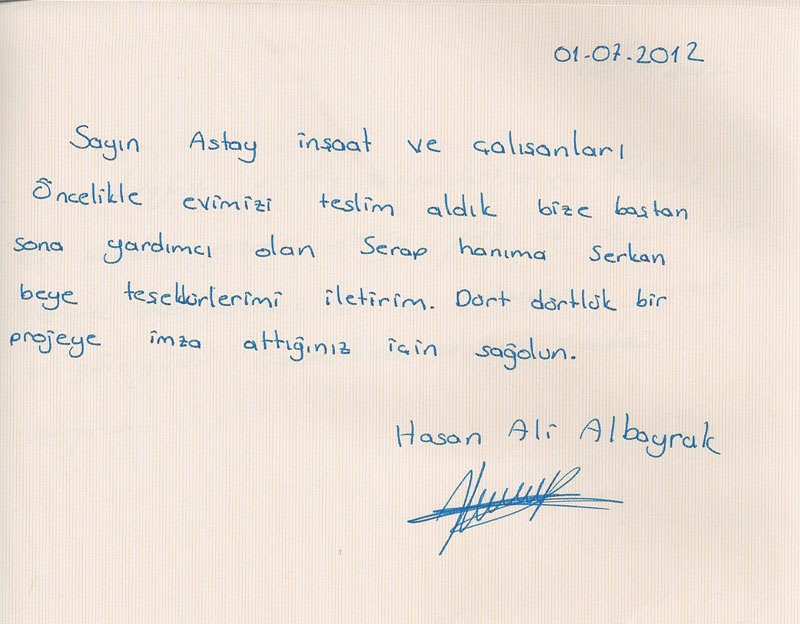 01-07-2012
Sayın Astay inşaat ve çalışanları
Öncelikle evimizi teslim aldık bize baştan
sona yardımcı olan Serap hanıma Serkan
beye teşekkürlerimi iletirim. Dört dörtlük bir
projeye imza attığınız için sağolun.
Hasan Ali Albayrak